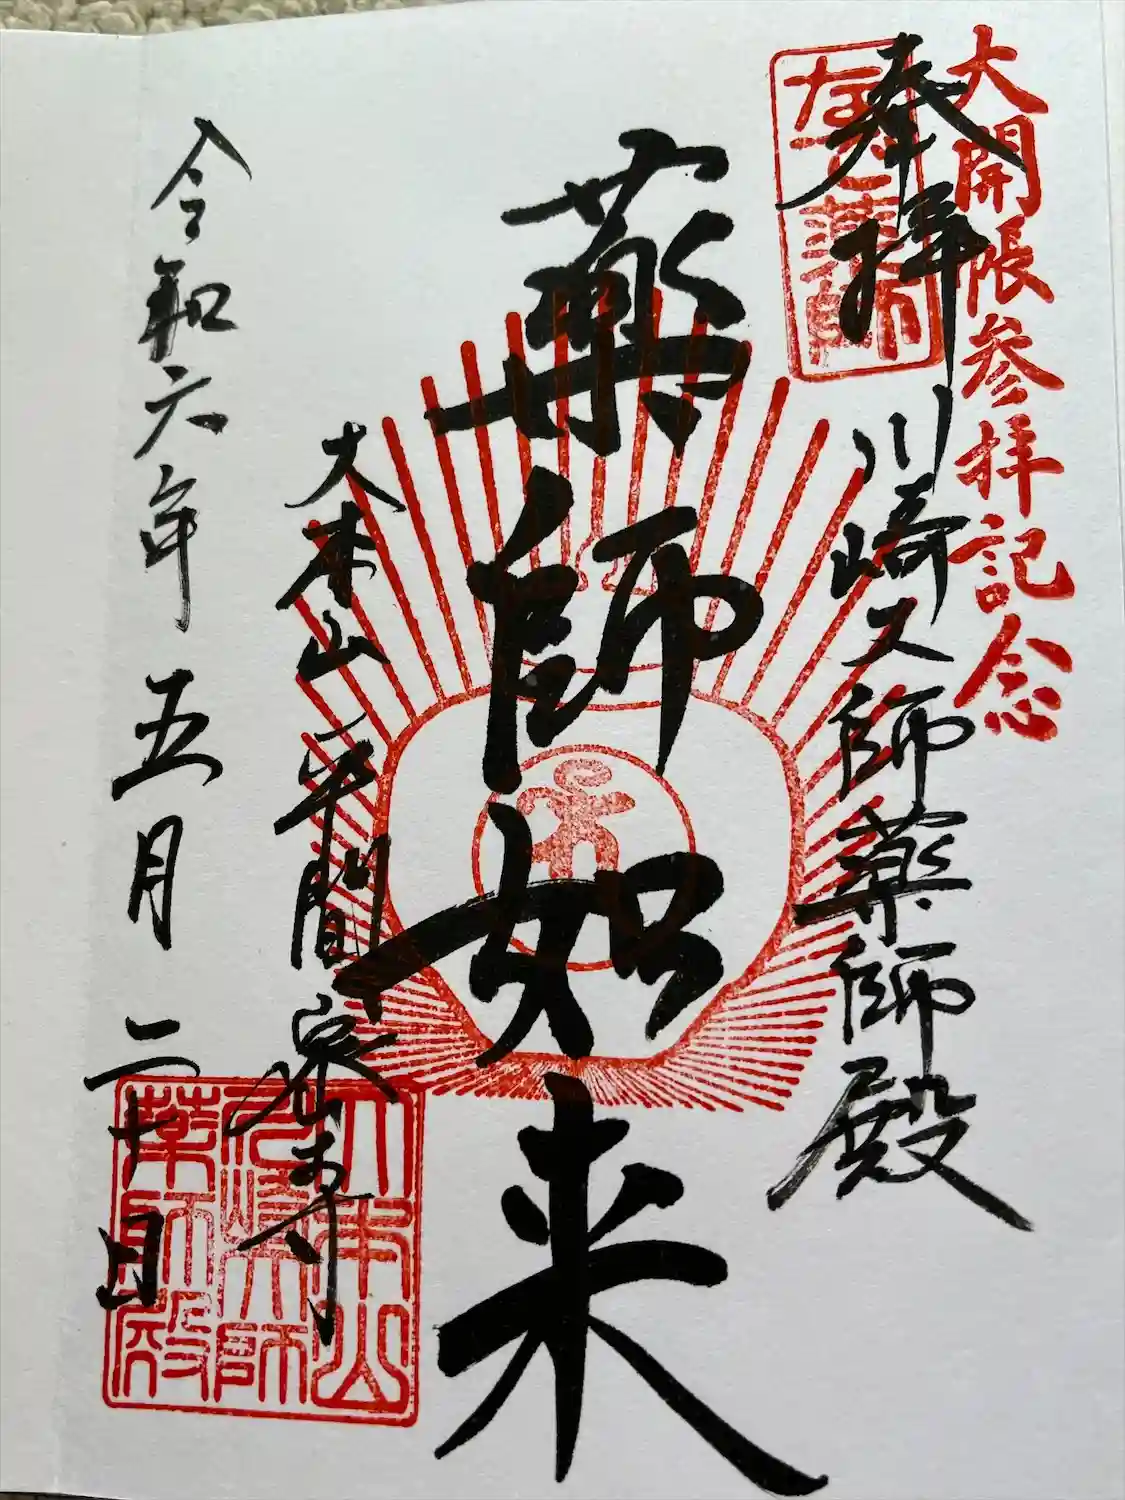 大開帳参拝記念
奉拝
なで薬師
川崎大師薬師殿
薬師如来
大本山 平間寺
令和六年 五月 二十日
大本山
川崎大師
薬師殿